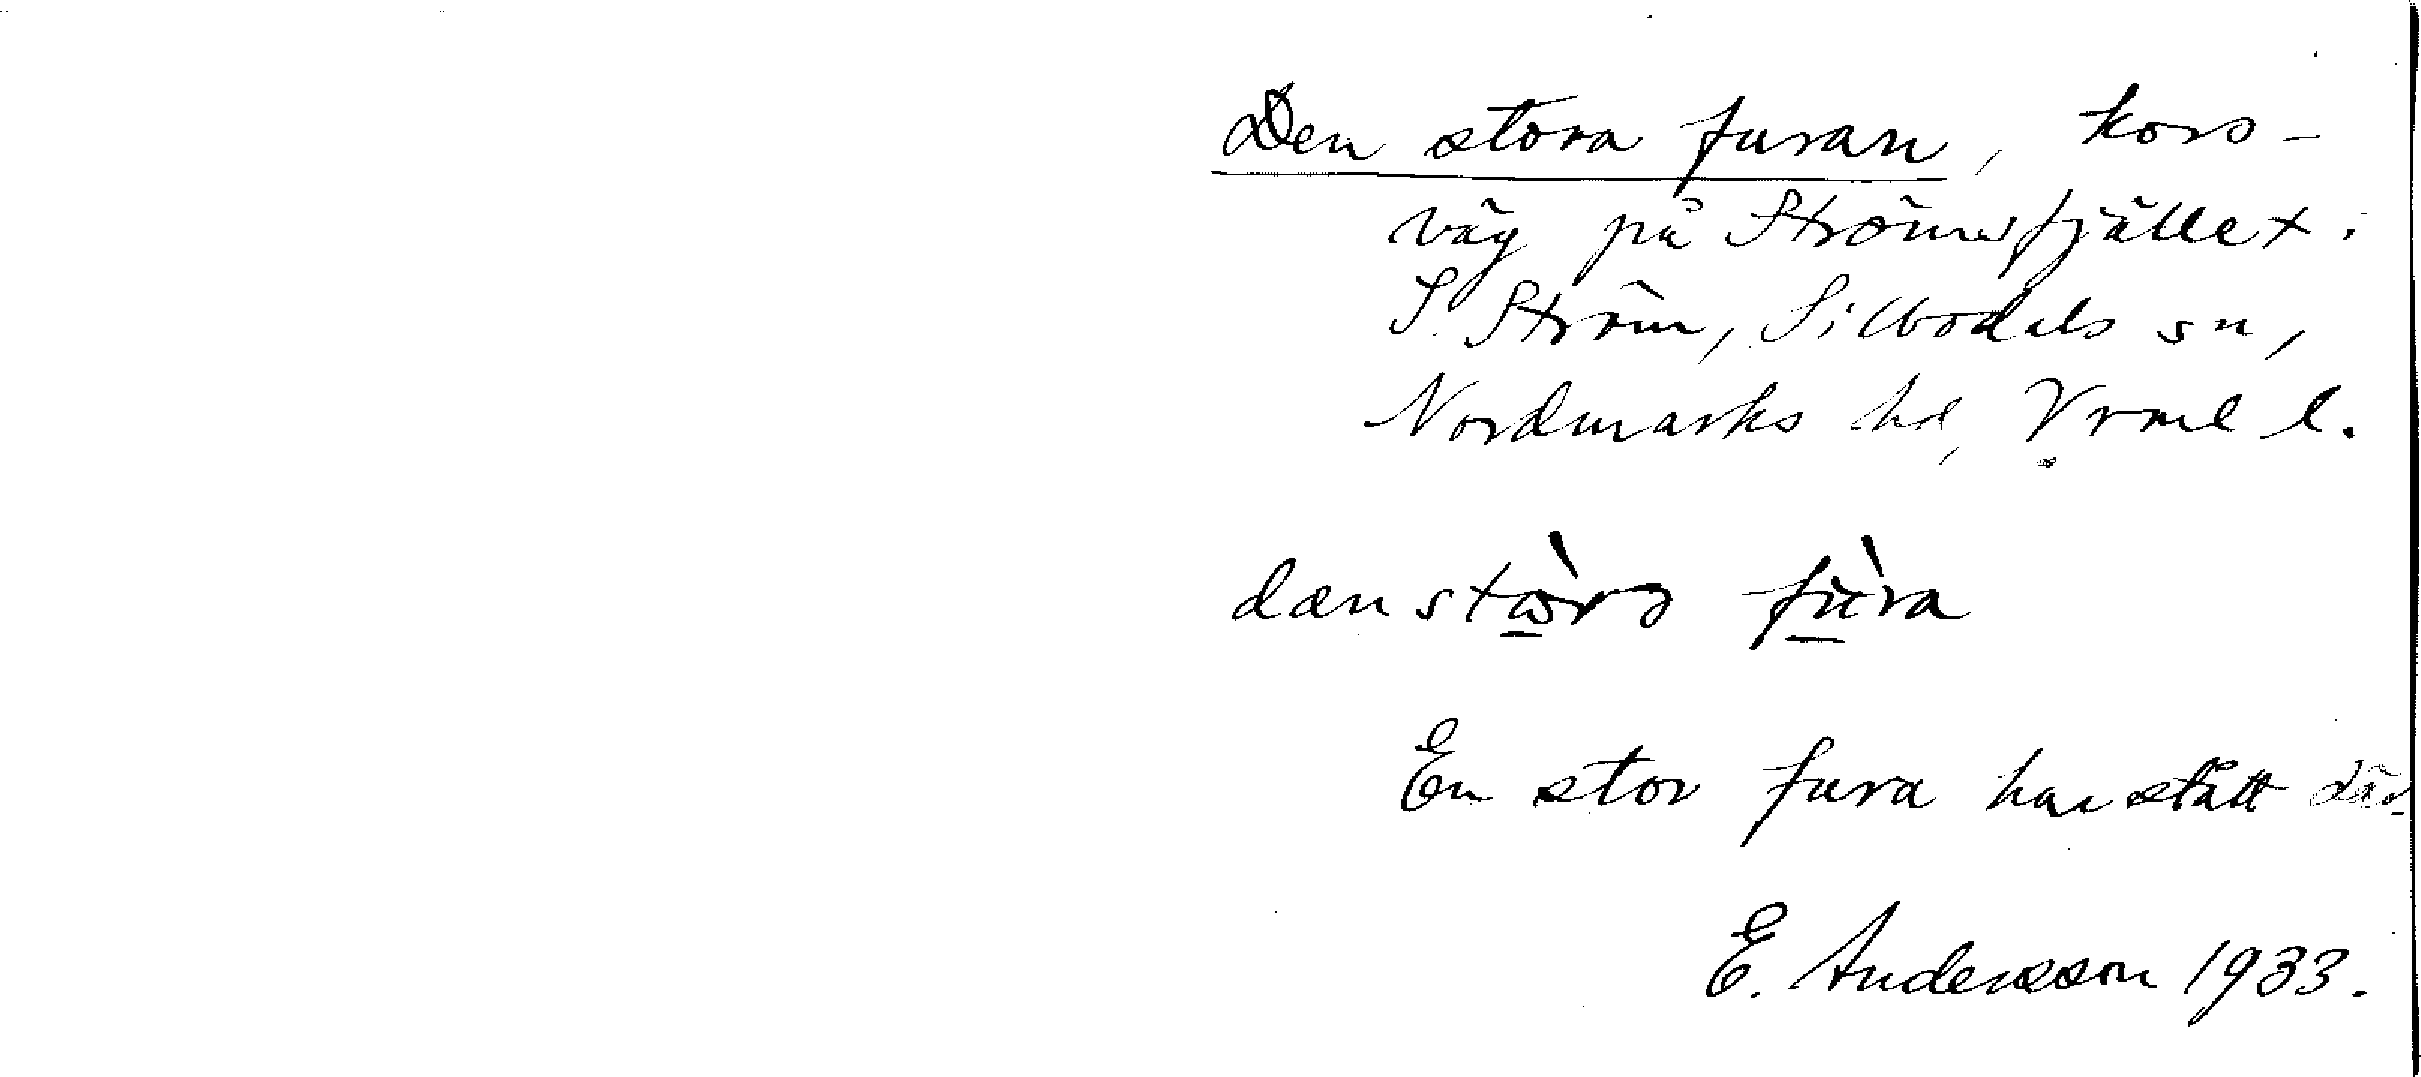 Den stora furan, kors-
väg på Strömsfjället i
S. Ström, Silbodals sn,
Nordmarks hd, Vrml l.
En stor fura har stått där.
E. Andersson 1933.